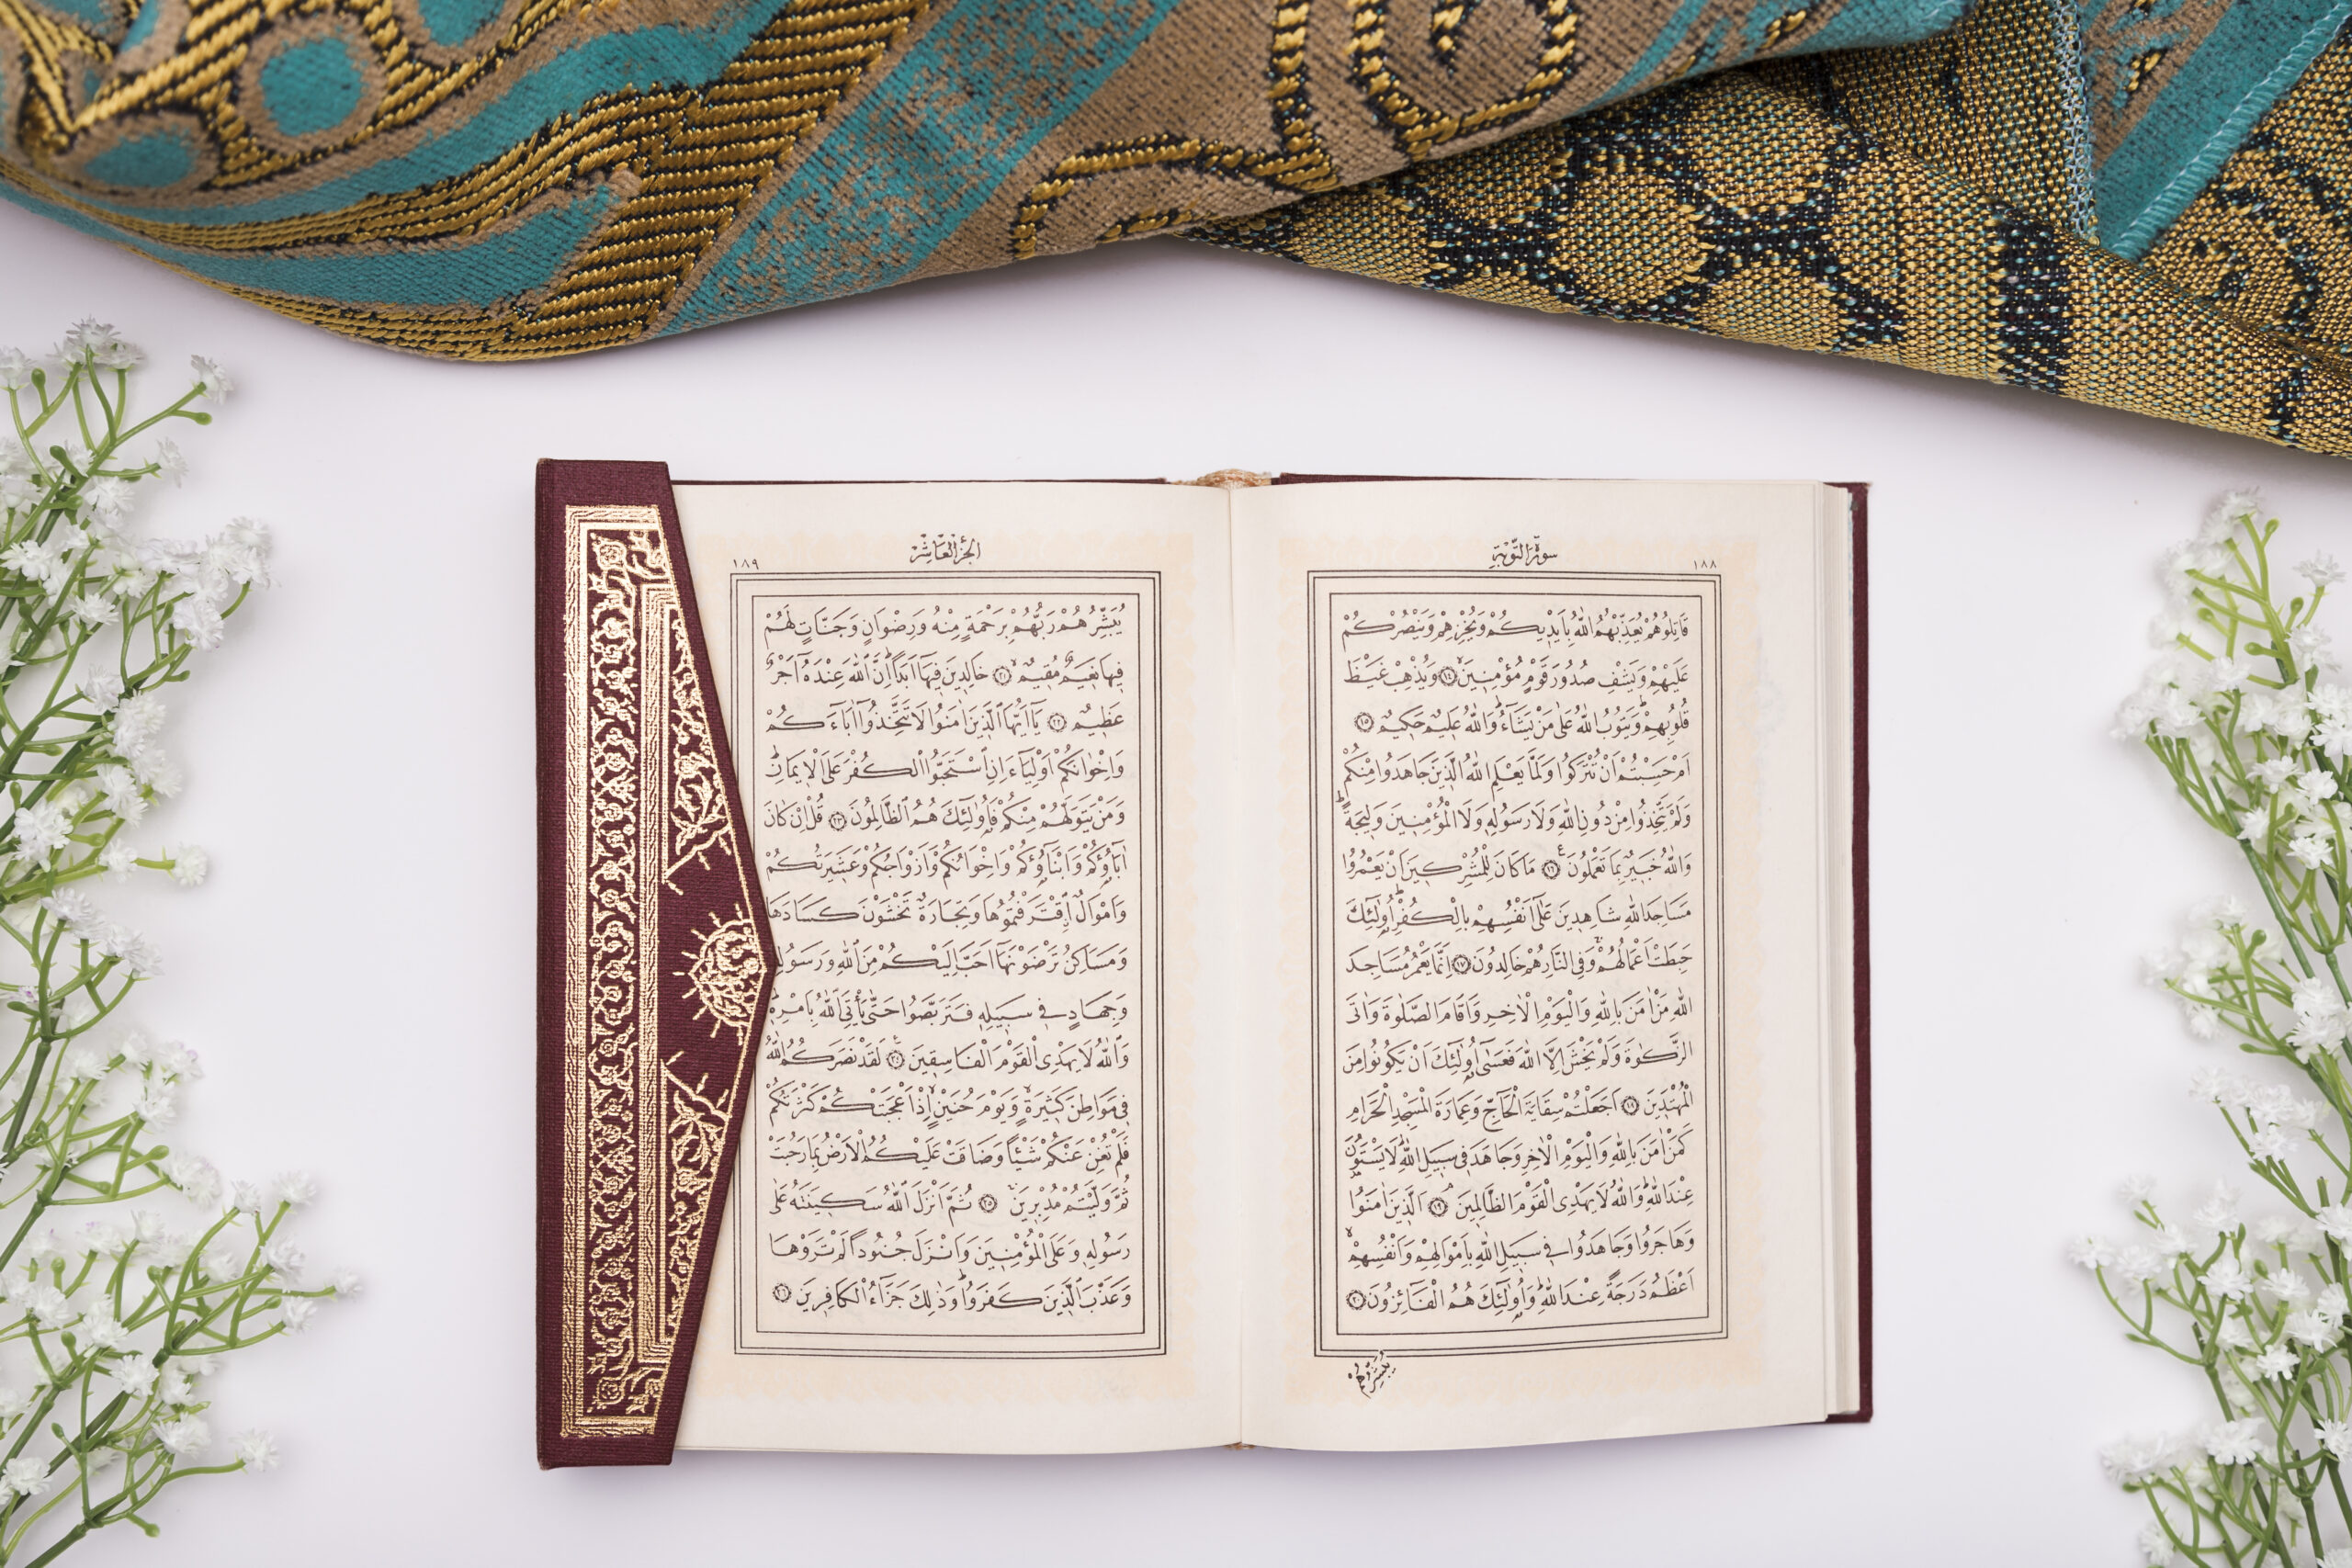 ١٨٨
سورة التوبة
قَاتِلُوهُمْ يُعَذِّبْهُمُ اللّٰهُ بِاَيْدٖيكُمْ وَيُخْزِهِمْ وَيَنْصُرْكُمْ
عَلَيْهِمْ وَيَشْفِ صُدُورَ قَوْمٍ مُؤْمِنٖينَۙ ﴿١٤﴾ وَيُذْهِبْ غَيْظَ
قُلُوبِهِمْؕ وَيَتُوبُ اللّٰهُ عَلٰى مَنْ يَشَٓاءُؕ وَاللّٰهُ عَلٖيمٌ حَكٖيمٌ ﴿١٥﴾
اَمْ حَسِبْتُمْ اَنْ تُتْرَكُوا وَلَمَّا يَعْلَمِ اللّٰهُ الَّذٖينَ جَاهَدُوا مِنْكُمْ
وَلَمْ يَتَّخِذُوا مِنْ دُونِ اللّٰهِ وَلَا رَسُولِهٖ وَلَا الْمُؤْمِنٖينَ وَلٖيجَةًؕ
وَاللّٰهُ خَبٖيرٌ بِمَا تَعْمَلُونَࣖ ﴿١٦﴾ مَا كَانَ لِلْمُشْرِكٖينَ اَنْ يَعْمُرُوا
مَسَاجِدَ اللّٰهِ شَاهِدٖينَ عَلٰٓى اَنْفُسِهِمْ بِالْكُفْرِؕ اُو۬لٰٓئِكَ
حَبِطَتْ اَعْمَالُهُمْۚ وَفِى النَّارِ هُمْ خَالِدُونَ ﴿١٧﴾ اِنَّمَا يَعْمُرُ مَسَاجِدَ
اللّٰهِ مَنْ اٰمَنَ بِاللّٰهِ وَالْيَوْمِ الْاٰخِرِ وَاَقَامَ الصَّلٰوةَ وَاٰتَى
الزَّكٰوةَ وَلَمْ يَخْشَ اِلَّا اللّٰهَ فَعَسٰٓى اُو۬لٰٓئِكَ اَنْ يَكُونُوا مِنَ
الْمُهْتَدٖينَ ﴿١٨﴾ اَجَعَلْتُمْ سِقَايَةَ الْحَٓاجِّ وَعِمَارَةَ الْمَسْجِدِ الْحَرَامِ
كَمَنْ اٰمَنَ بِاللّٰهِ وَالْيَوْمِ الْاٰخِرِ وَجَاهَدَ فٖى سَبٖيلِ اللّٰهِؕ لَا يَسْتَوُ۫نَ
عِنْدَ اللّٰهِؕ وَاللّٰهُ لَا يَهْدِى الْقَوْمَ الظَّالِمٖينَۘ ﴿١٩﴾ اَلَّذٖينَ اٰمَنُوا
وَهَاجَرُوا وَجَاهَدُوا فٖى سَبٖيلِ اللّٰهِ بِاَمْوَالِهِمْ وَاَنْفُسِهِمْۙ
اَعْظَمُ دَرَجَةً عِنْدَ اللّٰهِؕ وَاُو۬لٰٓئِكَ هُمُ الْفَٓائِزُونَ ﴿٢٠﴾
يُبَشِّرُهُمْ
الجزء العاشر
١٨٩
يُبَشِّرُهُمْ رَبُّهُمْ بِرَحْمَةٍ مِنْهُ وَرِضْوَانٍ وَجَنَّاتٍ لَهُمْ
فٖيهَا نَعٖيمٌ مُقٖيمٌۙ ﴿٢١﴾ خَالِدٖينَ فٖيهَٓا اَبَدًاؕ اِنَّ اللّٰهَ عِنْدَهُٓ اَجْرٌ
عَظٖيمٌ ﴿٢٢﴾ يَٓا اَيُّهَا الَّذٖينَ اٰمَنُوا لَا تَتَّخِذُٓوا اٰبَٓاءَكُمْ
وَاِخْوَانَكُمْ اَوْلِيَٓاءَ اِنِ اسْتَحَبُّوا الْكُفْرَ عَلَى الْاٖيمَانِؕ
وَمَنْ يَتَوَلَّهُمْ مِنْكُمْ فَاُو۬لٰٓئِكَ هُمُ الظَّالِمُونَ ﴿٢٣﴾ قُلْ اِنْ كَانَ
اٰبَٓاؤُ۬كُمْ وَاَبْنَٓاؤُ۬كُمْ وَاِخْوَانُكُمْ وَاَزْوَاجُكُمْ وَعَشٖيرَتُكُمْ
وَاَمْوَالٌۨ اقْتَرَفْتُمُوهَا وَتِجَارَةٌ تَخْشَوْنَ كَسَادَهَا
وَمَسَاكِنُ تَرْضَوْنَهَٓا اَحَبَّ اِلَيْكُمْ مِنَ اللّٰهِ وَرَسُولِهٖ
وَجِهَادٍ فٖى سَبٖيلِهٖ فَتَرَبَّصُوا حَتّٰى يَأْتِىَ اللّٰهُ بِاَمْرِهٖؕ
وَاللّٰهُ لَا يَهْدِى الْقَوْمَ الْفَاسِقٖينَࣖ ﴿٢٤﴾ لَقَدْ نَصَرَكُمُ اللّٰهُ
فٖى مَوَاطِنَ كَثٖيرَةٍۙ وَيَوْمَ حُنَيْنٍۙ اِذْ اَعْجَبَتْكُمْ كَثْرَتُكُمْ
فَلَمْ تُغْنِ عَنْكُمْ شَيْـًٔا وَضَاقَتْ عَلَيْكُمُ الْاَرْضُ بِمَا رَحُبَتْ
ثُمَّ وَلَّيْتُمْ مُدْبِرٖينَۚ ﴿٢٥﴾ ثُمَّ اَنْزَلَ اللّٰهُ سَكٖينَتَهُ عَلٰى
رَسُولِهٖ وَعَلَى الْمُؤْمِنٖينَ وَاَنْزَلَ جُنُودًا لَمْ تَرَوْهَا
وَعَذَّبَ الَّذٖينَ كَفَرُواؕ وَذٰلِكَ جَزَٓاءُ الْكَافِرٖينَ ﴿٢٦﴾